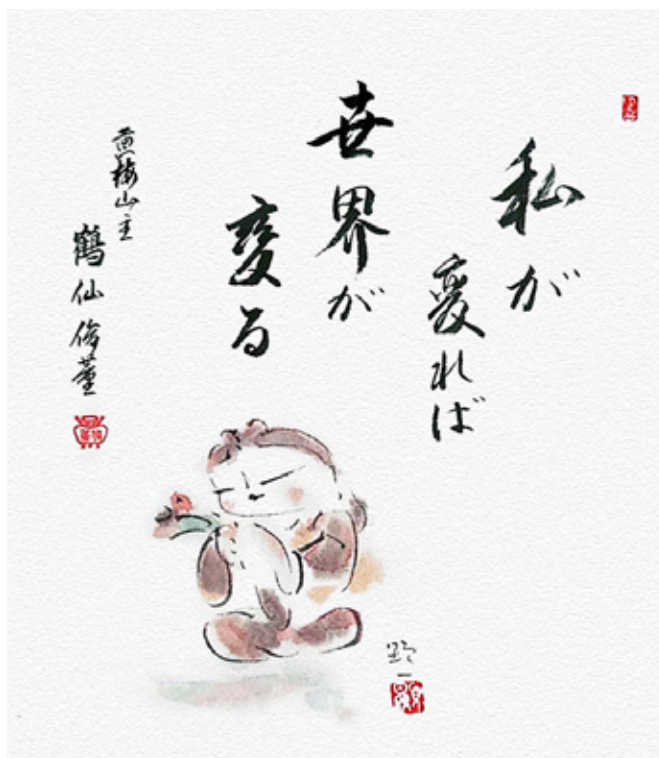 私が
変れば
世界が
変る
黄梅山主
鶴仙俊董